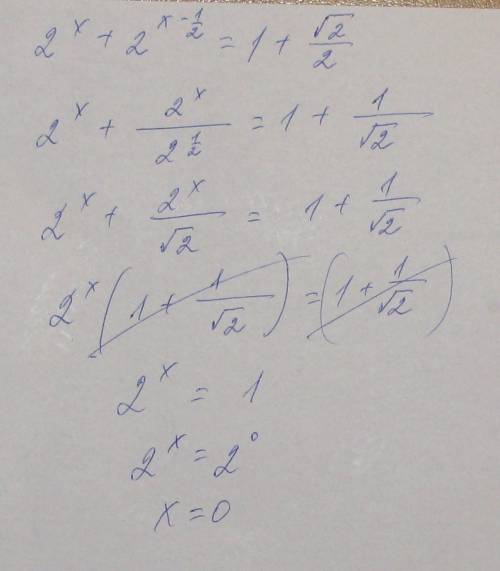 2^x + 2^{x - \frac{1}{2}} = 1 + \frac{\sqrt{2}}{2}
2^x + \frac{2^x}{2^{\frac{1}{2}}} = 1 + \frac{1}{\sqrt{2}}
2^x + \frac{2^x}{\sqrt{2}} = 1 + \frac{1}{\sqrt{2}}
2^x (1 + \frac{1}{\sqrt{2}}) = (1 + \frac{1}{\sqrt{2}})
2^x = 1
2^x = 2^0
x = 0